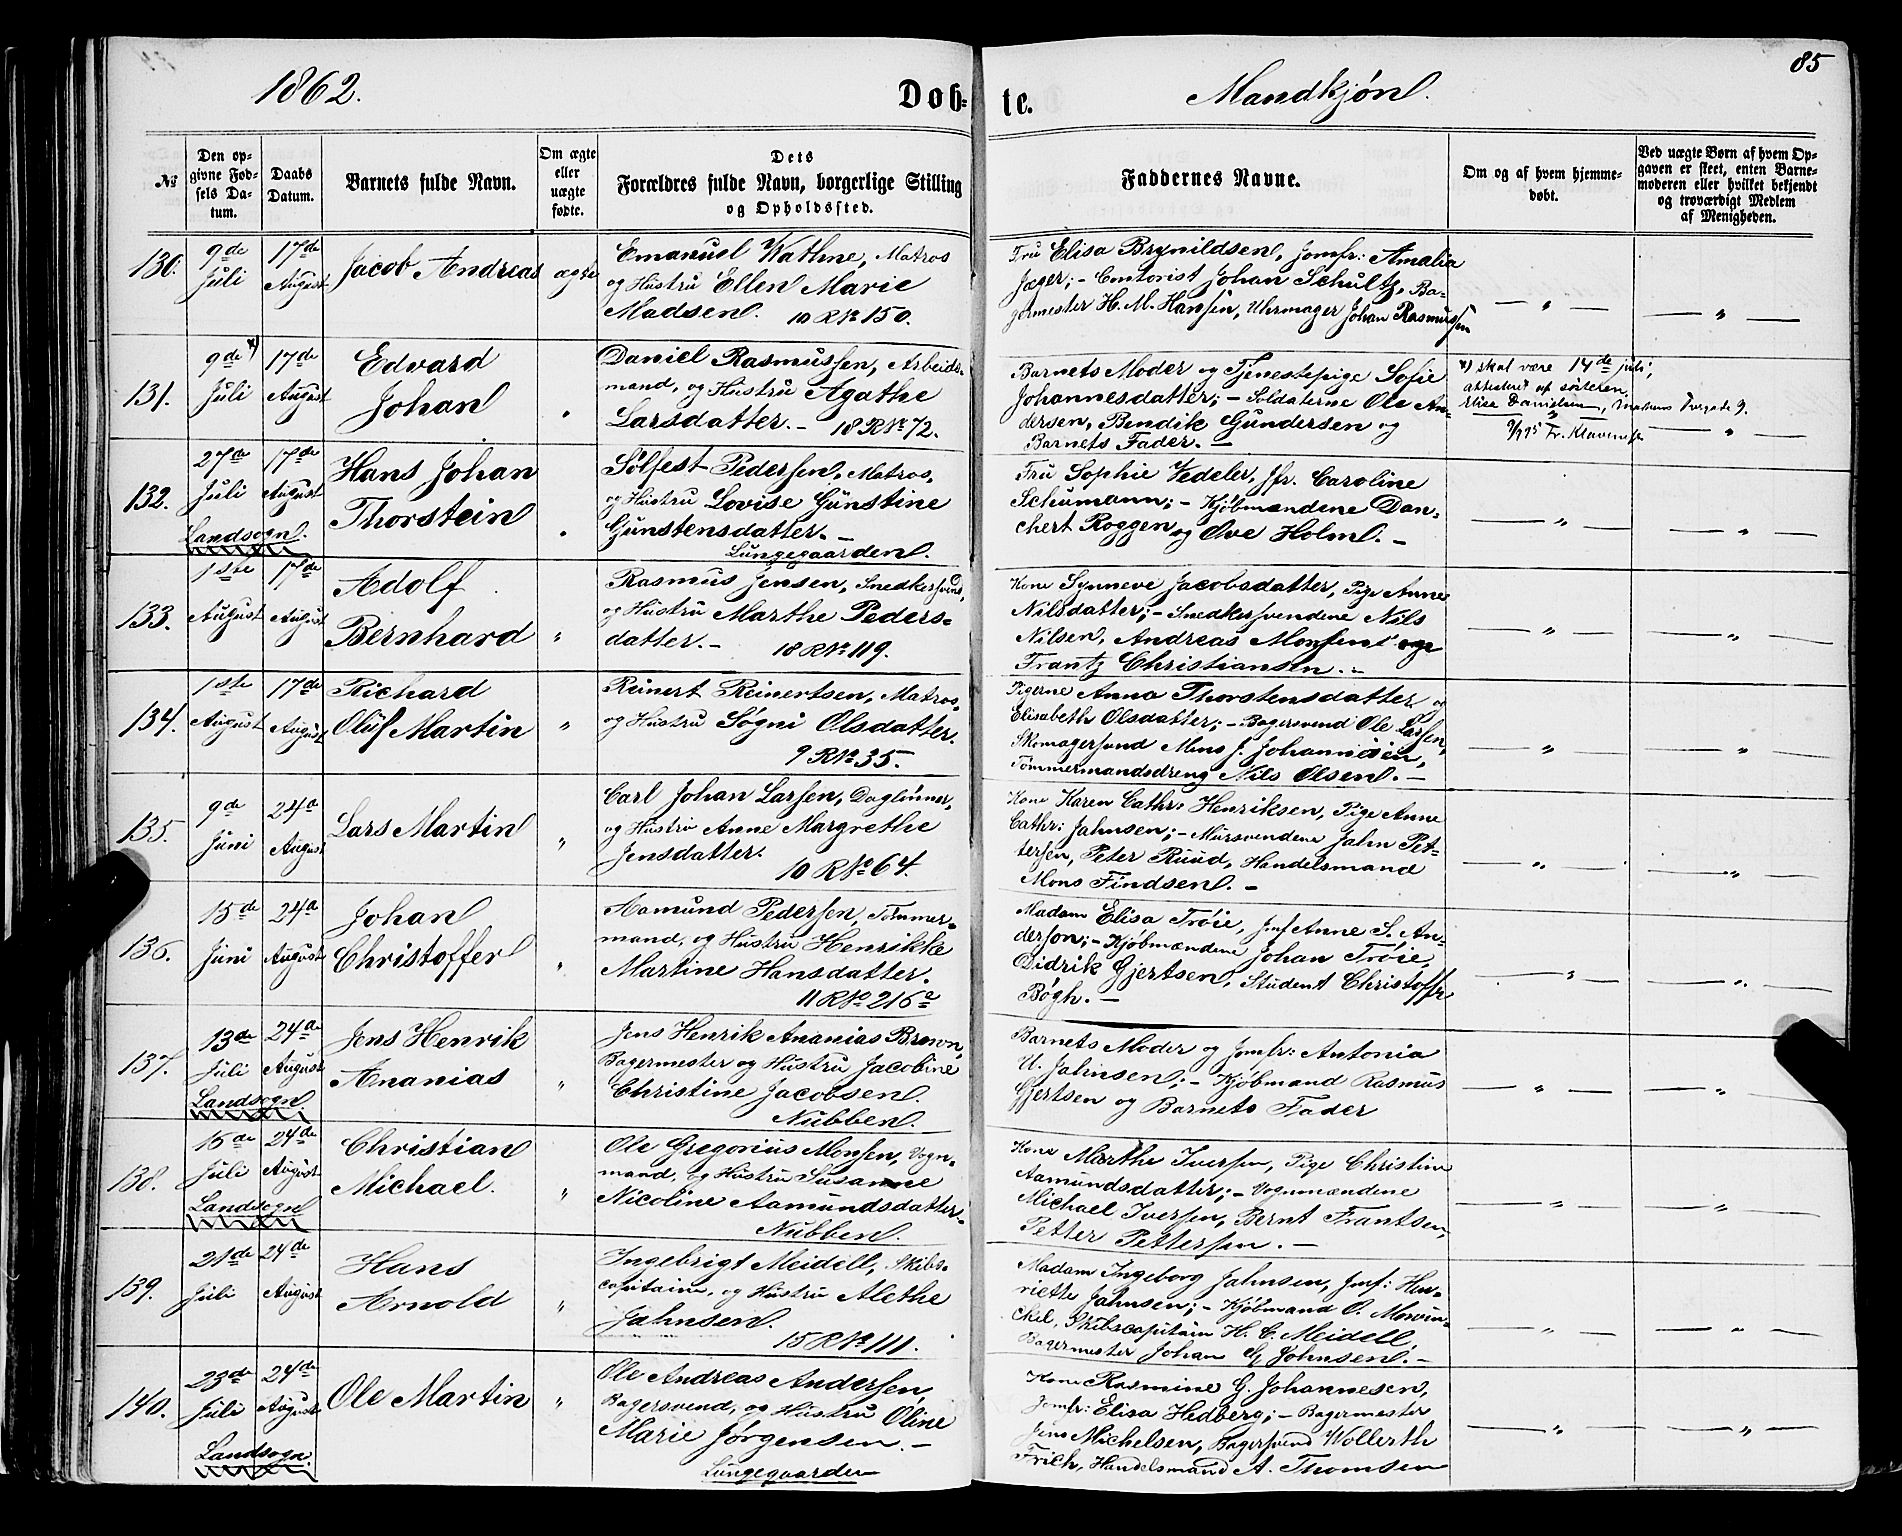 1862. Døb- te. Mandkjøn. 85
№
Den op-
givne Fød-
sels Da-
tum.
Daabs
Datum.
Barnets fulde Navn.
Om ægte
eller
uægte
fødte.
Dets
Forældres fulde Navn, borgerlige Stilling
og Opholdssted.
Faddernes Navne.
Om og af hvem hjemme-
døbt.
Ved uægte Børn af hvem Op-
gaven er skeet, enten Barne-
moderen eller hvilket bekjendt
og troværdigt Medlem
af Menigheden.
130.
9de
Juli
17de
August
Jacob Andreas
ægte
Emanuel Wathne, Matros
og Hustru Ellen Marie
Madsen. 10 R № 150.
Fru Elisa Brynildsen, Jomfr: Amalia
Jæger; - Contorist Johan Schultz, Ba-
germester H. M. Hansen, Uhrmager Johan Rasmussen
— " — — " —
131.
9de *)
Juli
17de
August
Edvard
Johan
"
Daniel Rasmussen, Arbeids-
mand, og Hustru Agathe
Larsdatter. - 18 R № 72.
Barnets Moder og Tjenestepige Sofie
Johannesdatter; - Soldaterne Ole An-
dersen, Bendik Gundersen og
Barnets Fader. -
*) skal være 14de juli,
attesteret af søsteren,
Elise Danielsen,
Fr. Klaveness
— " —
132.
27de
Juli
Landsogn.
17de
August
Hans Johan
Thorstein
"
Sølfest Pedersen, Matros,
og Hustru Lovise Gunstine
Gunstensdatter. -
Lungegaarden.
Fru Sophie Vedeler, Jfr. Caroline
Schumann; - Kjøbmændene Dan-
chert Roggen og Ove Holm. -
— " — — " —
133.
1ste
August
17de
August
Adolf
Bernhard
"
Rasmus Jensen, Snedkersvend,
og Hustru Marthe Peders-
datter. - 18 R № 119.
Kone Synneve Jacobsdatter, Pige Anne
Nilsdatter; - Snedkersvendene Nils
Nilsen, Andreas Monsen og
Frantz Christiansen. -
— " — — " —
134.
1ste
August
17de
August
Richard
Oluf Martin
"
Reinert Reinertsen, Matros,
og Hustru Søgni Olsdatter.
9 R № 35.
Pigerne Anna Thorstensdatter og
Elisabeth Olsdatter; - Bagersvend Ole Larsen,
Skomagersvend Mons J. Johannesen,
Tømmermandsdreng Nils Olsen. -
— " — — " —
135.
9de
Juni
24d
August
Lars Martin
"
Carl Johan Larsen, Daglønner,
og Hustru Anne Margrethe
Jensdatter.
10 R № 64.
Kone Karen Cathr: Henriksen, Pige Anne
Cathr: Jahnsen; - Mursvendene Jahn Pet-
tersen, Peter Ruud, Handelsmand
Mons Findsen. -
— " — — " —
136.
15de
Juni
24d
August
Johan
Christoffer
"
Aamund Pedersen, Tømmer-
mand, og Hustru Henrikke
Martine Hansdatter.
11 R № 216a
Madam Elisa Trøie, Jmf Anne S. An-
dersen; - Kjøbmændene Johan Trøie,
Didrik Gjertsen, Student Christoffer
Bøgh. -
— " — — " —
137.
13de
Juli
Landsogn
24d
August
Jens Henrik
Ananias
"
Jens Henrik Ananias Brown,
Bagermester og Hustru Jacobine
Christine Jacobsen.
Nubben.
Barnets Moder og Jomfr: Antonia
U. Jahnsen; - Kjøbmand Rasmus
Gjertsen og Barnets Fader
— " — — " —
138.
15de
Juli
Landsogn
24de
August
Christian
Michael.
"
Ole Gregorius Monsen, Vogn-
mand, og Hustru Susanne
Nicoline Aamundsdatter.
Nubben.
Kone Marthe Iversen, Pige Christine
Aamundsdatter; - Vognmændene
Michael Iversen, Bernt Frantsen,
Petter Pettersen. -
— " — — " —
139.
21de
Juli
24de
August
Hans
Arnold
"
Ingebrigt Meidell, Skibs-
capitaine, og Hustru Alethe
Jahnsen.
15 R № 111.
Madam Ingeborg Jahnsen, Jmf: Hen-
riette Jahnsen; - Kjøbmand O. Mowin-
ckel, Skibscapitain H. C. Meidell,
Bagermester Johan G. Johnsen. -
— " — — " —
140.
23de
Juli
Landsogn.
24de
August
Ole Martin
"
Ole Andreas Andersen,
Bagersvend, og Hustru Oline
Marie Jørgensen. -
Lungegaarden
Kone Rasmine G. Johannesen,
Jomfr: Elisa Hedberg; - Bagermester
Jens Michelsen, Bagersvend Wollerth
Frich, Handelsmand A. Thomsen
— " — — " —